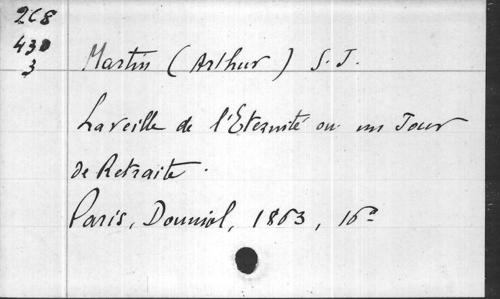 268
430
3
Martin (Arthur) S. J.
La veille de l'Eternité ou un Jour
de Retraite.
Paris, Douniol, 1863, 16º